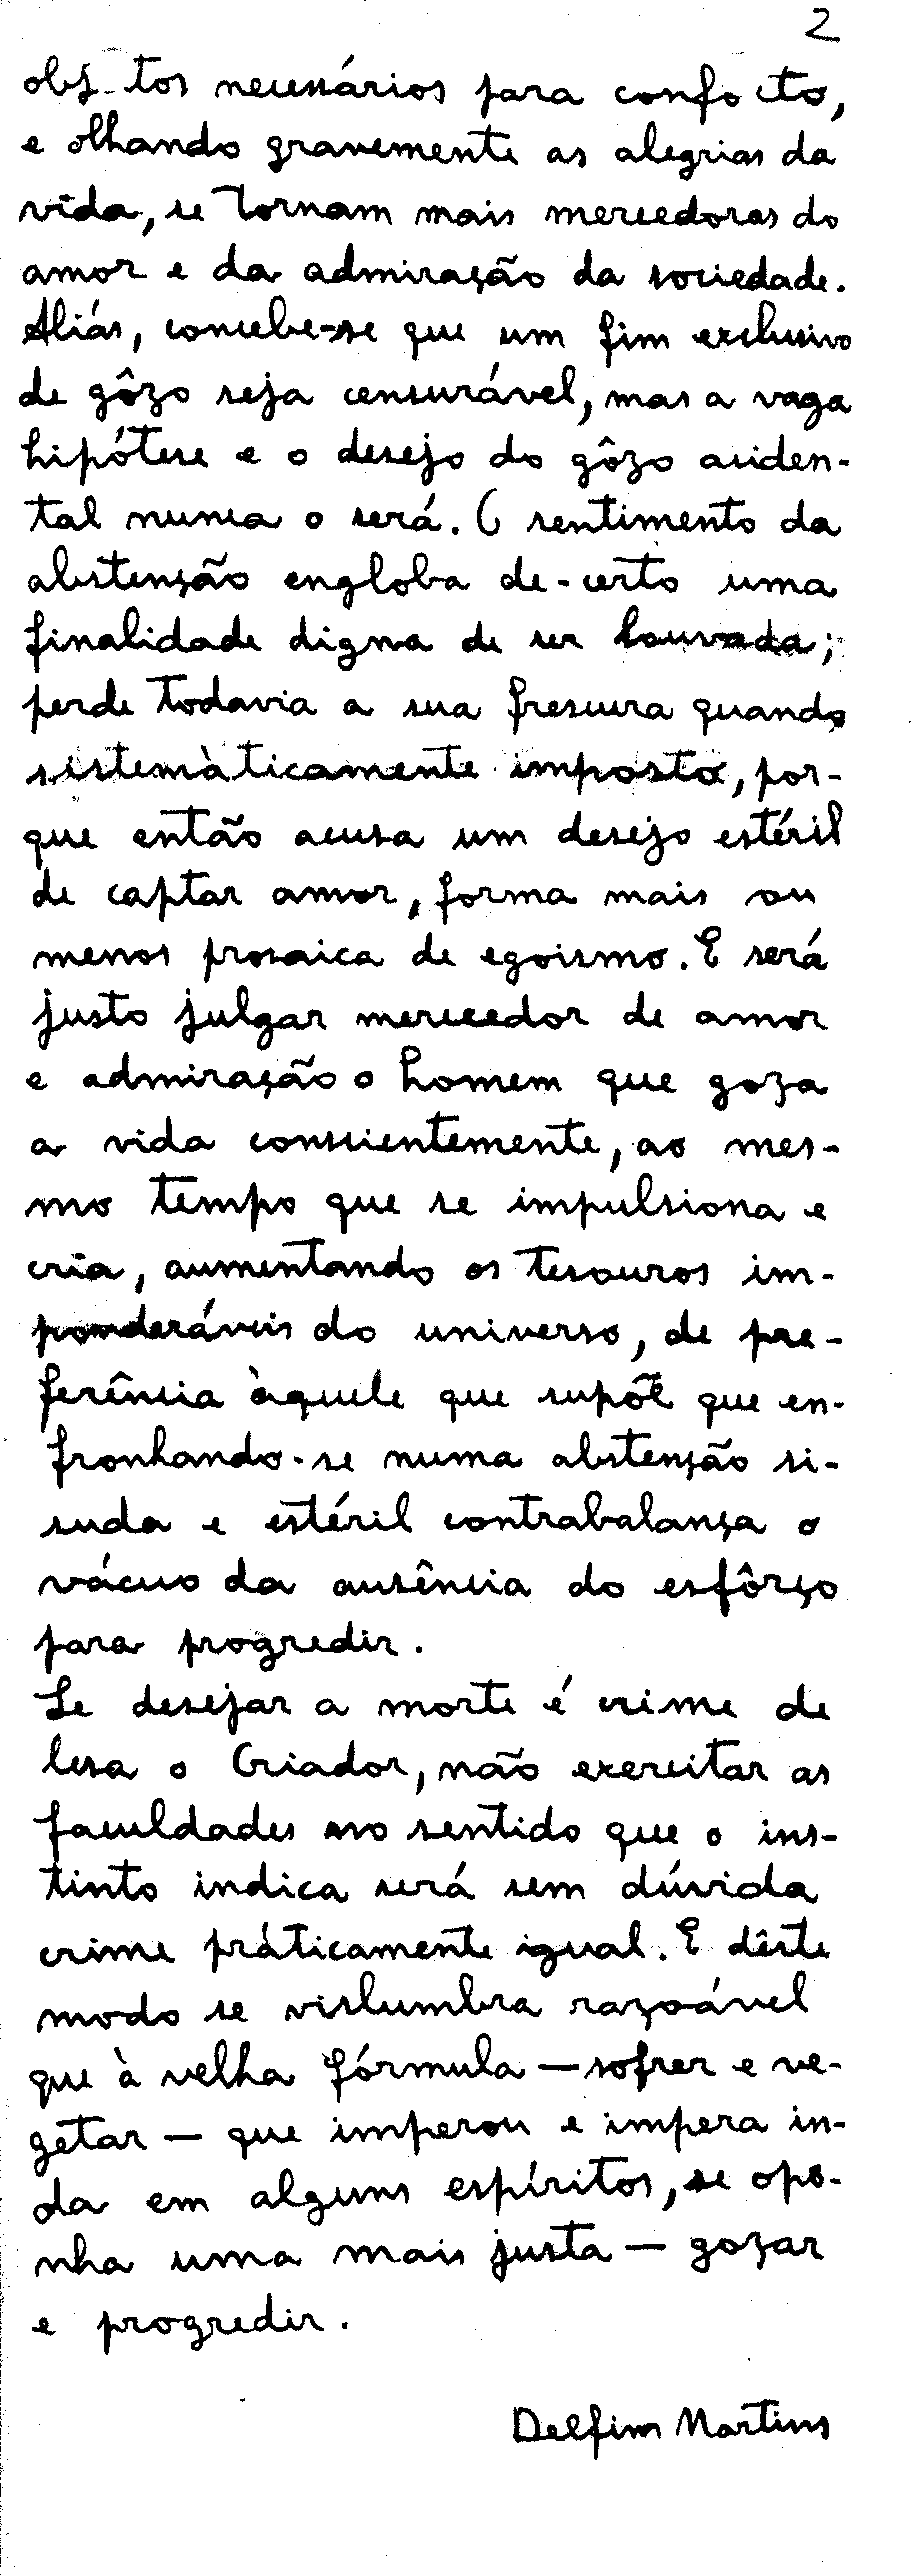 2
obj-tos necessários para confo to,
e olhando gravemente as alegrias da
vida, se tornam mais merecedoras do
amor e da admiração da sociedade.
Aliás, concebe-se que um fim exclusivo
de gôzo seja censurável, mas a vaga
hipótese e o desejo do gôzo aciden-
tal nunca o será. O sentimento da
abstenção engloba de-certo uma
finalidade digna de ser louvada;
perde todavia a sua frescura quando
sistemàticamente imposta, por-
que então acusa um desejo estéril
de captar amor, forma mais ou
menos prosaica de egoismo. E será
justo julgar merecedor de amor
e admiração o homem que goza
a vida conscientemente, ao mes-
mo tempo que se impulsiona e
cria, aumentando os tesouros im-
ponderáveis do universo, de pre-
ferência àquele que supõe que en-
fronhando-se numa abstenção si-
suda e estéril contrabalança o
vácuo da ausência do esfôrço
para progredir.
Se desejar a morte é crime de
lesa o Criador, não exercitar as
faculdades no sentido que o ins-
tinto indica será sem dúvida
crime pràticamente igual. E dêste
modo se vislumbra razoável
que à velha fórmula — sofrer e ve-
getar — que imperou e impera in-
da em alguns espíritos, se opo-
nha uma mais justa — gozar
e progredir.
Delfim Martins